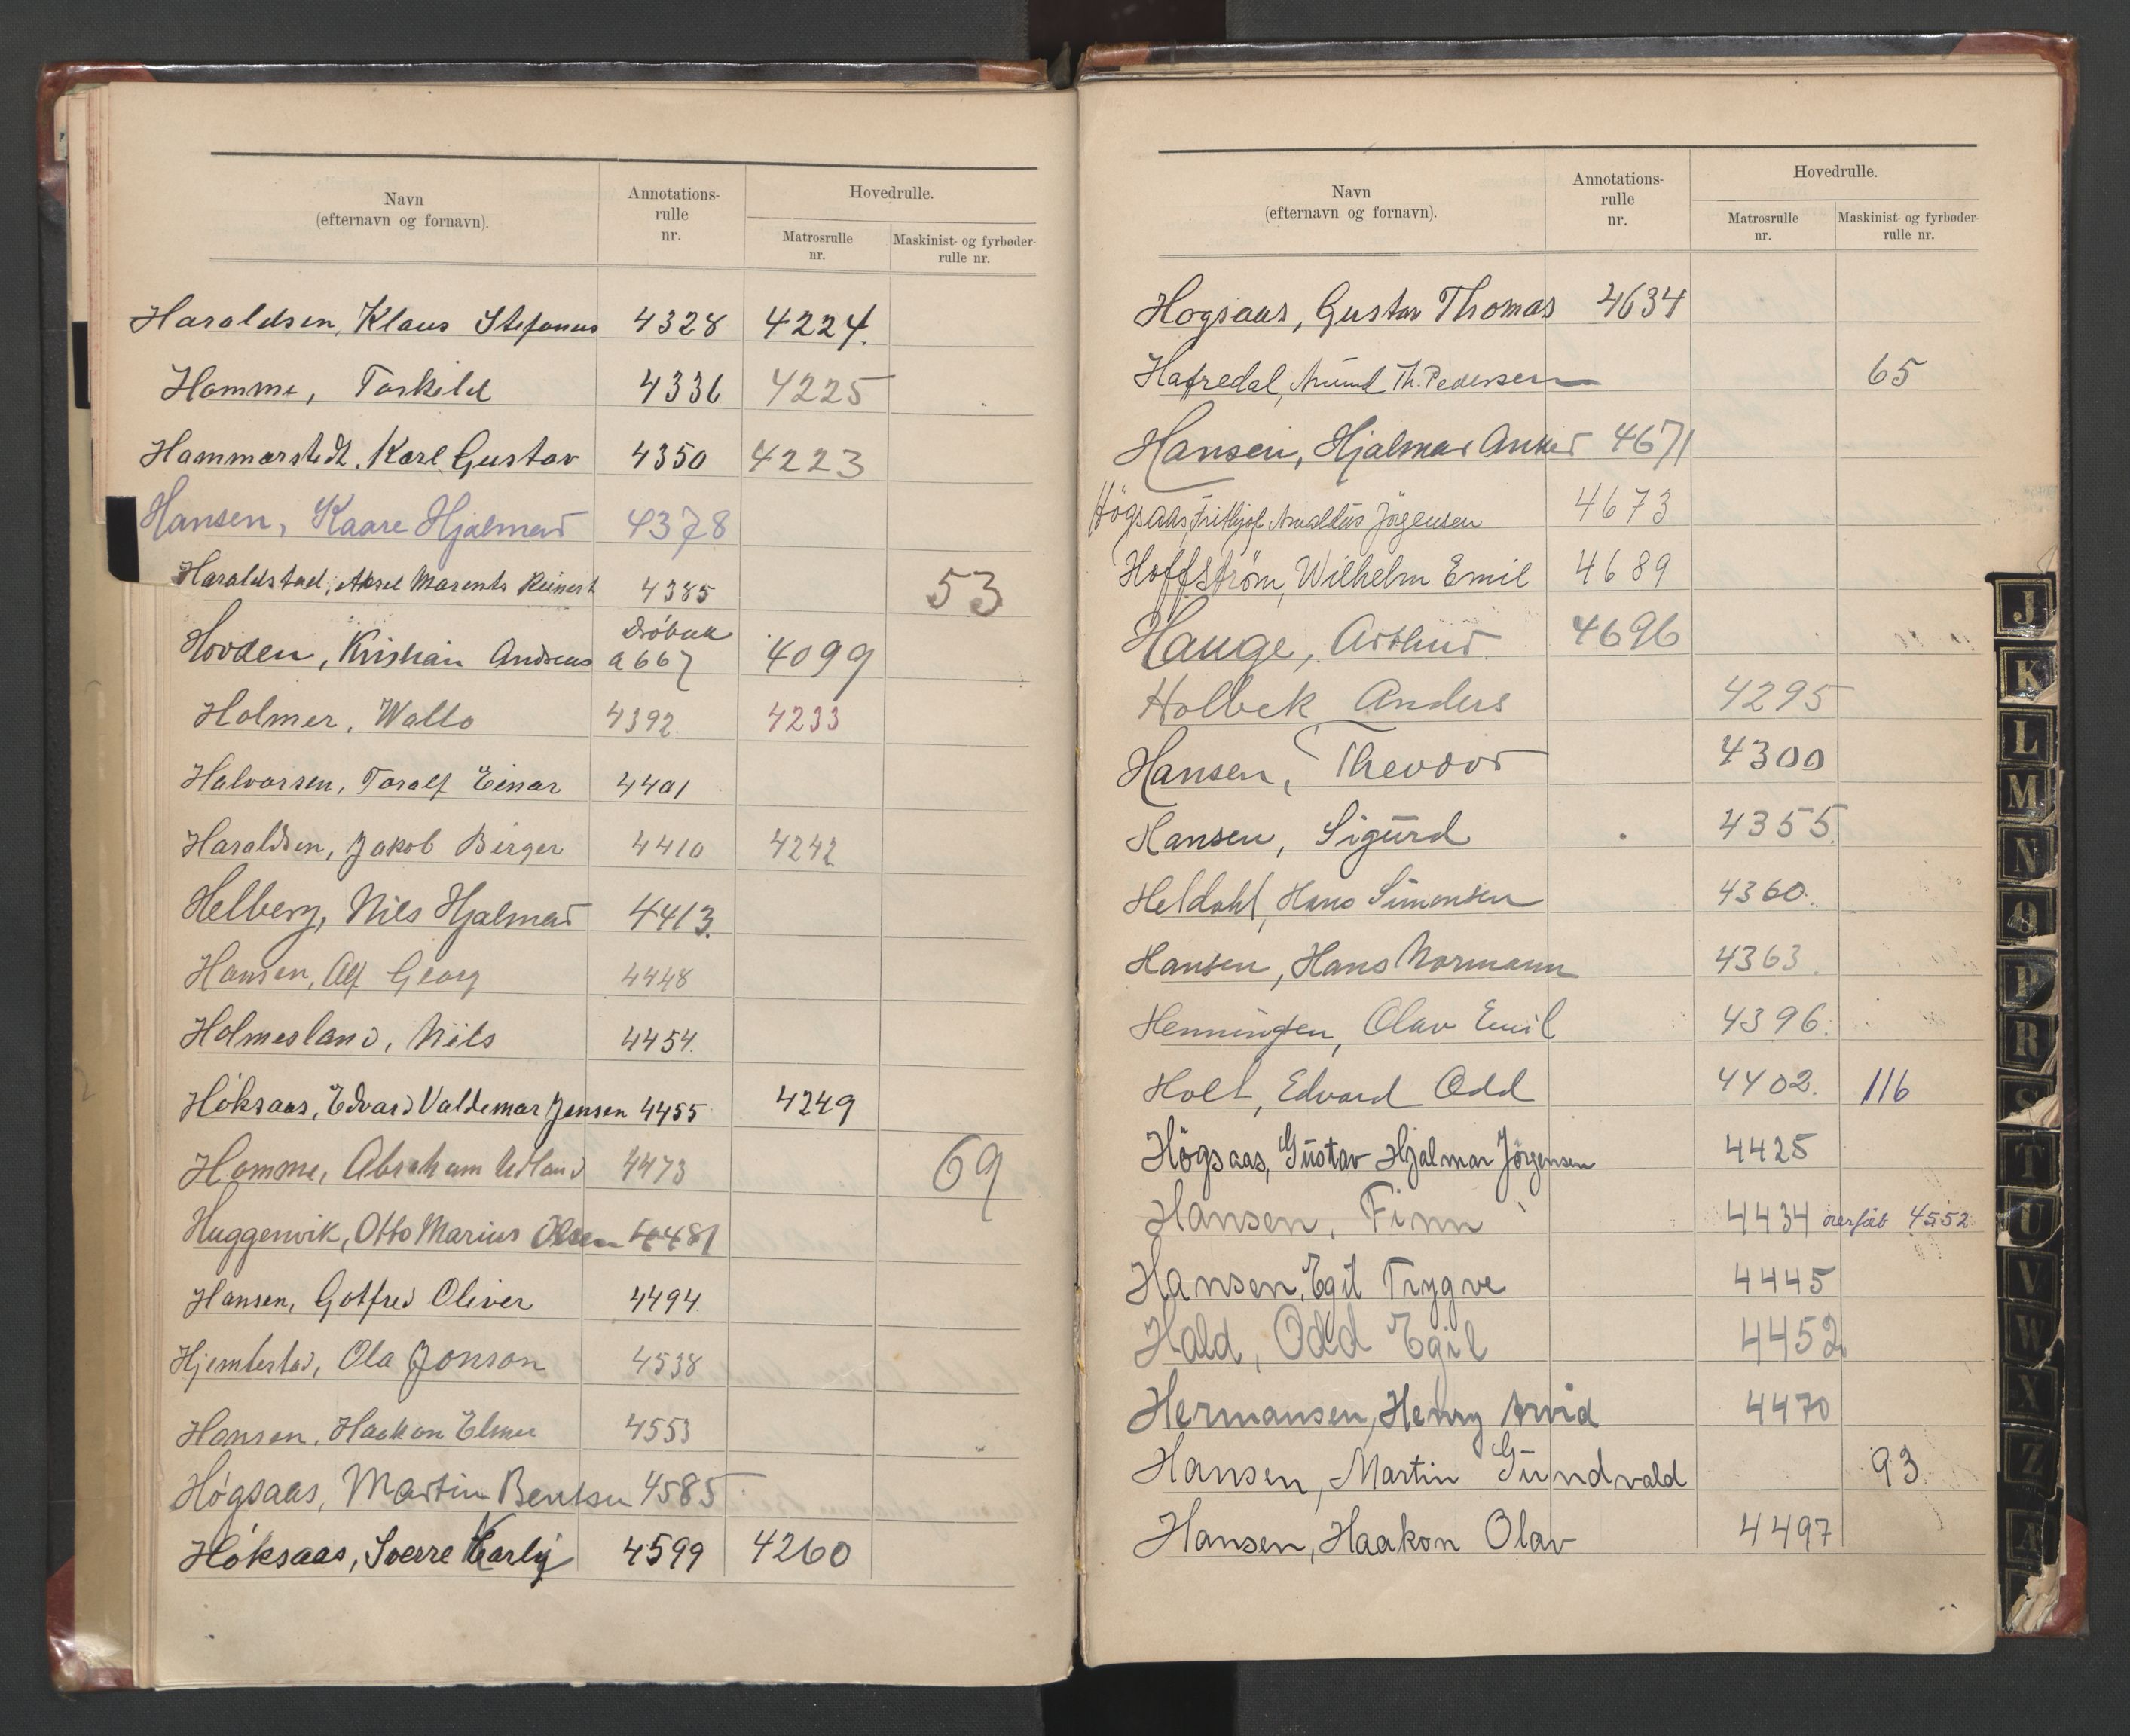 Navn
(efternavn og fornavn).
Annotations-
rulle
nr.
Hovedrulle.
Matrosrulle
nr.
Maskinist- og fyrbøder-
rulle nr.
Haraldsen, Klaus Stefanus 4328 4224.
Homme, Torkild 4336 4225
Hammarstedt, Karl Gustav 4350 4223
Hansen, Kaare Hjalmar 4378
Haraldstad, Aksel Marents Reinert 4385 53
Drøbak
Hovden, Kristian Andreas a 667 4099
Holmer, Wallo 4392 4233
Halvorsen, Toralf Einar 4401
Haraldsen, Jakob Birger 4410 4242
Helberg, Nils Hjalmar 4413.
Hansen, Alf Georg 4448
Holmesland, Nils 4454.
Høksaas, Edvard Valdemar Jensen 4455 4249
Homme, Abraham 4473 69
Huggenvik, Otto Marius Olsen 4481
Hansen, Gotfred Oliver 4494.
Hjemtestad, Ola Jonson 4538
Hansen, Haakon Elmer 4553
Høgsaas, Martin Bentsen 4585
Høksaas, Sverre Karly 4599 4260
Navn
(efternavn og fornavn).
Annotations-
rulle
nr.
Hovedrulle.
Matrosrulle
nr.
Maskinist- og fyrbøder-
rulle nr.
Hogsaas, Gustav Thomas 4634
Hafredal, Th. Pedersen 65
Hansen, Hjalmar Anker 4671
Högsaas, Frithjof Jörgensen 4673
Hoffstrøm, Wilhelm Emil 4689
Hauge, Arthur 4696
Holbek Anders 4295
Hansen, Theodor 4300
Hansen, Sigurd 4355.
Heldahl, Hans Simonsen 4360.
Hansen, Hans Normann 4363.
Henningsen, Olav Emil 4396.
Holt, Edvard Odd 4402. 116
Högsaas, Gustav Hjalmar Jörgensen 4425
Hansen, Finn 4434 overført 4552
Hansen, Egil Trygve 4445
Hald, Odd Egil 4452
Hermansen, Henry Arvid 4470
Hansen, Martin Gundvald 93.
Hansen, Haakon Olav 4497
J
K
L
M
N
O
P
R
S
T
U
V
W
X
Z
A